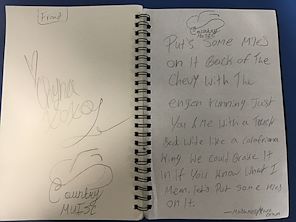 Front
XOXO
Country
MUISC
Country
MUISC
Put's Some Miles
on It Back of The
Chevy With The
engen running Just
You & Me With a Truck
Bed Wife like a California
King We could Brake It
In if You Know What I
Mean. let's Put Some miles
on It.